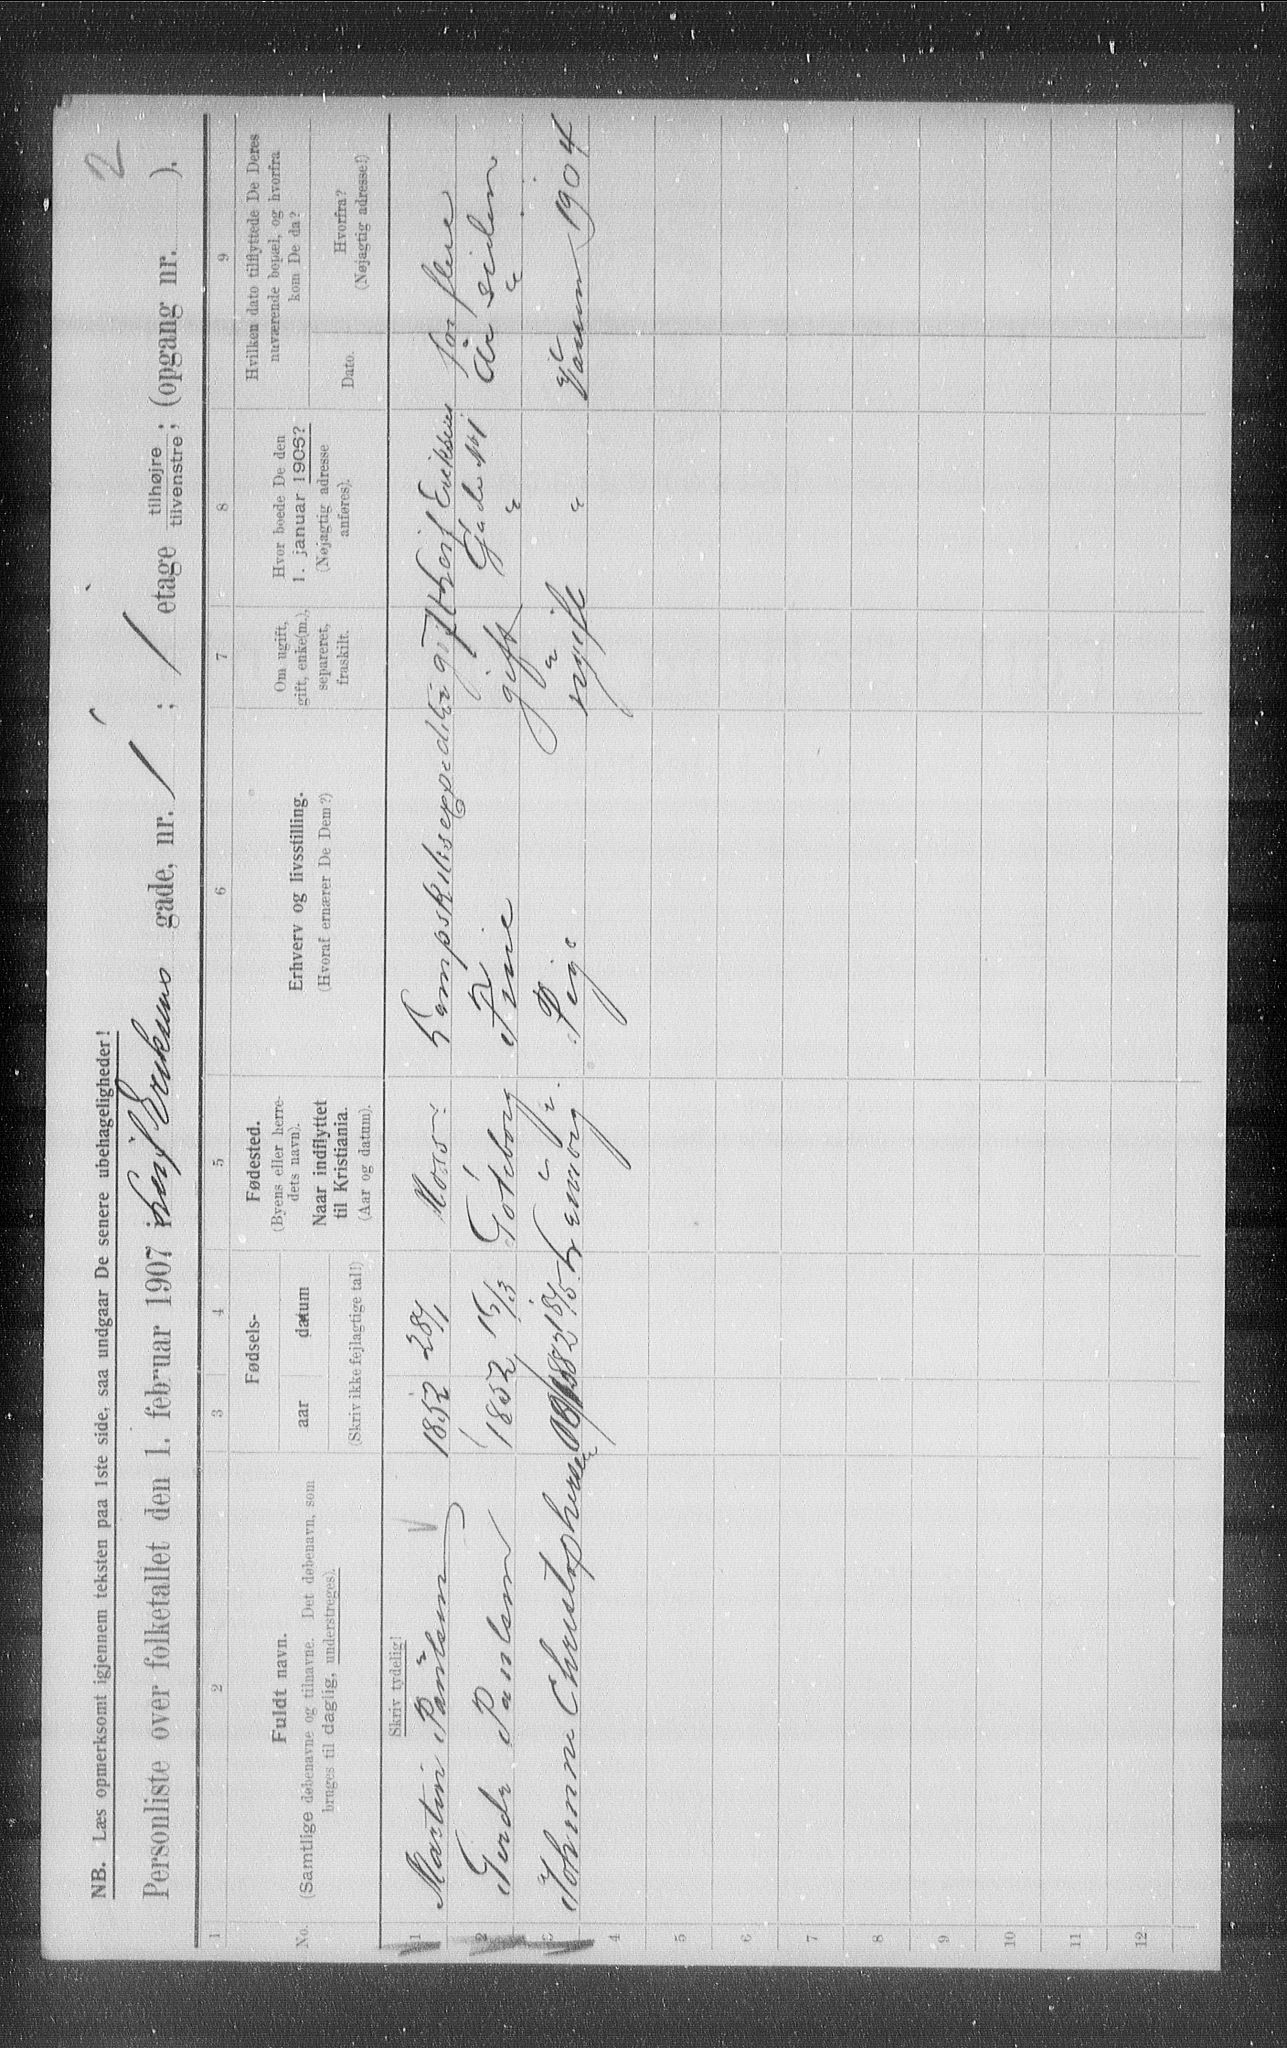 2
NB. Læs opmerksomt igjennem teksten paa 1ste side, saa undgaar De senere ubehageligheder!
Personliste over folketallet den 1. februar 1907 i Leif Eriksens gade, nr. 1 ; 1 etage tilhøjre/tilvenstre; (opgang nr. ).
1 2 3 4 5 6 7 8 9
No.
Fuldt navn.
(Samtlige døbenavne og tilnavne. Det døbenavn, som
bruges til daglig, understreges).
Skriv tydelig!
Fødsels-
aar datum
(Skriv ikke fejlagtige tal!)
Fødested.
(Byens eller herre-
dets navn).
Naar indflyttet
til Kristiania.
(Aar og datum).
Erhverv og livsstilling.
(Hvoraf ernærer De Dem?)
Om ugift,
gift, enke(m.),
separeret,
fraskilt.
Hvor boede De den
1. januar 1905?
(Nøjagtig adresse
anføres).
Hvilken dato tilflyttede De Deres
nuværende bopæl, og hvorfra
kom De da?
Dato.
Hvorfra?
(Nøjagtig adresse!)
1 Martin Paulsen 1852 28/1 Moss Dampskibsexpeditør gift Leif Eriksens for flere
2 Paulsen 1852 15/3 Göteborg Frue gift Gade N1 " år siden "
3 Johanne Christophersen 1882 18/5 Pige ugift " 1904
4
5
6
7
8
9
10
11
12